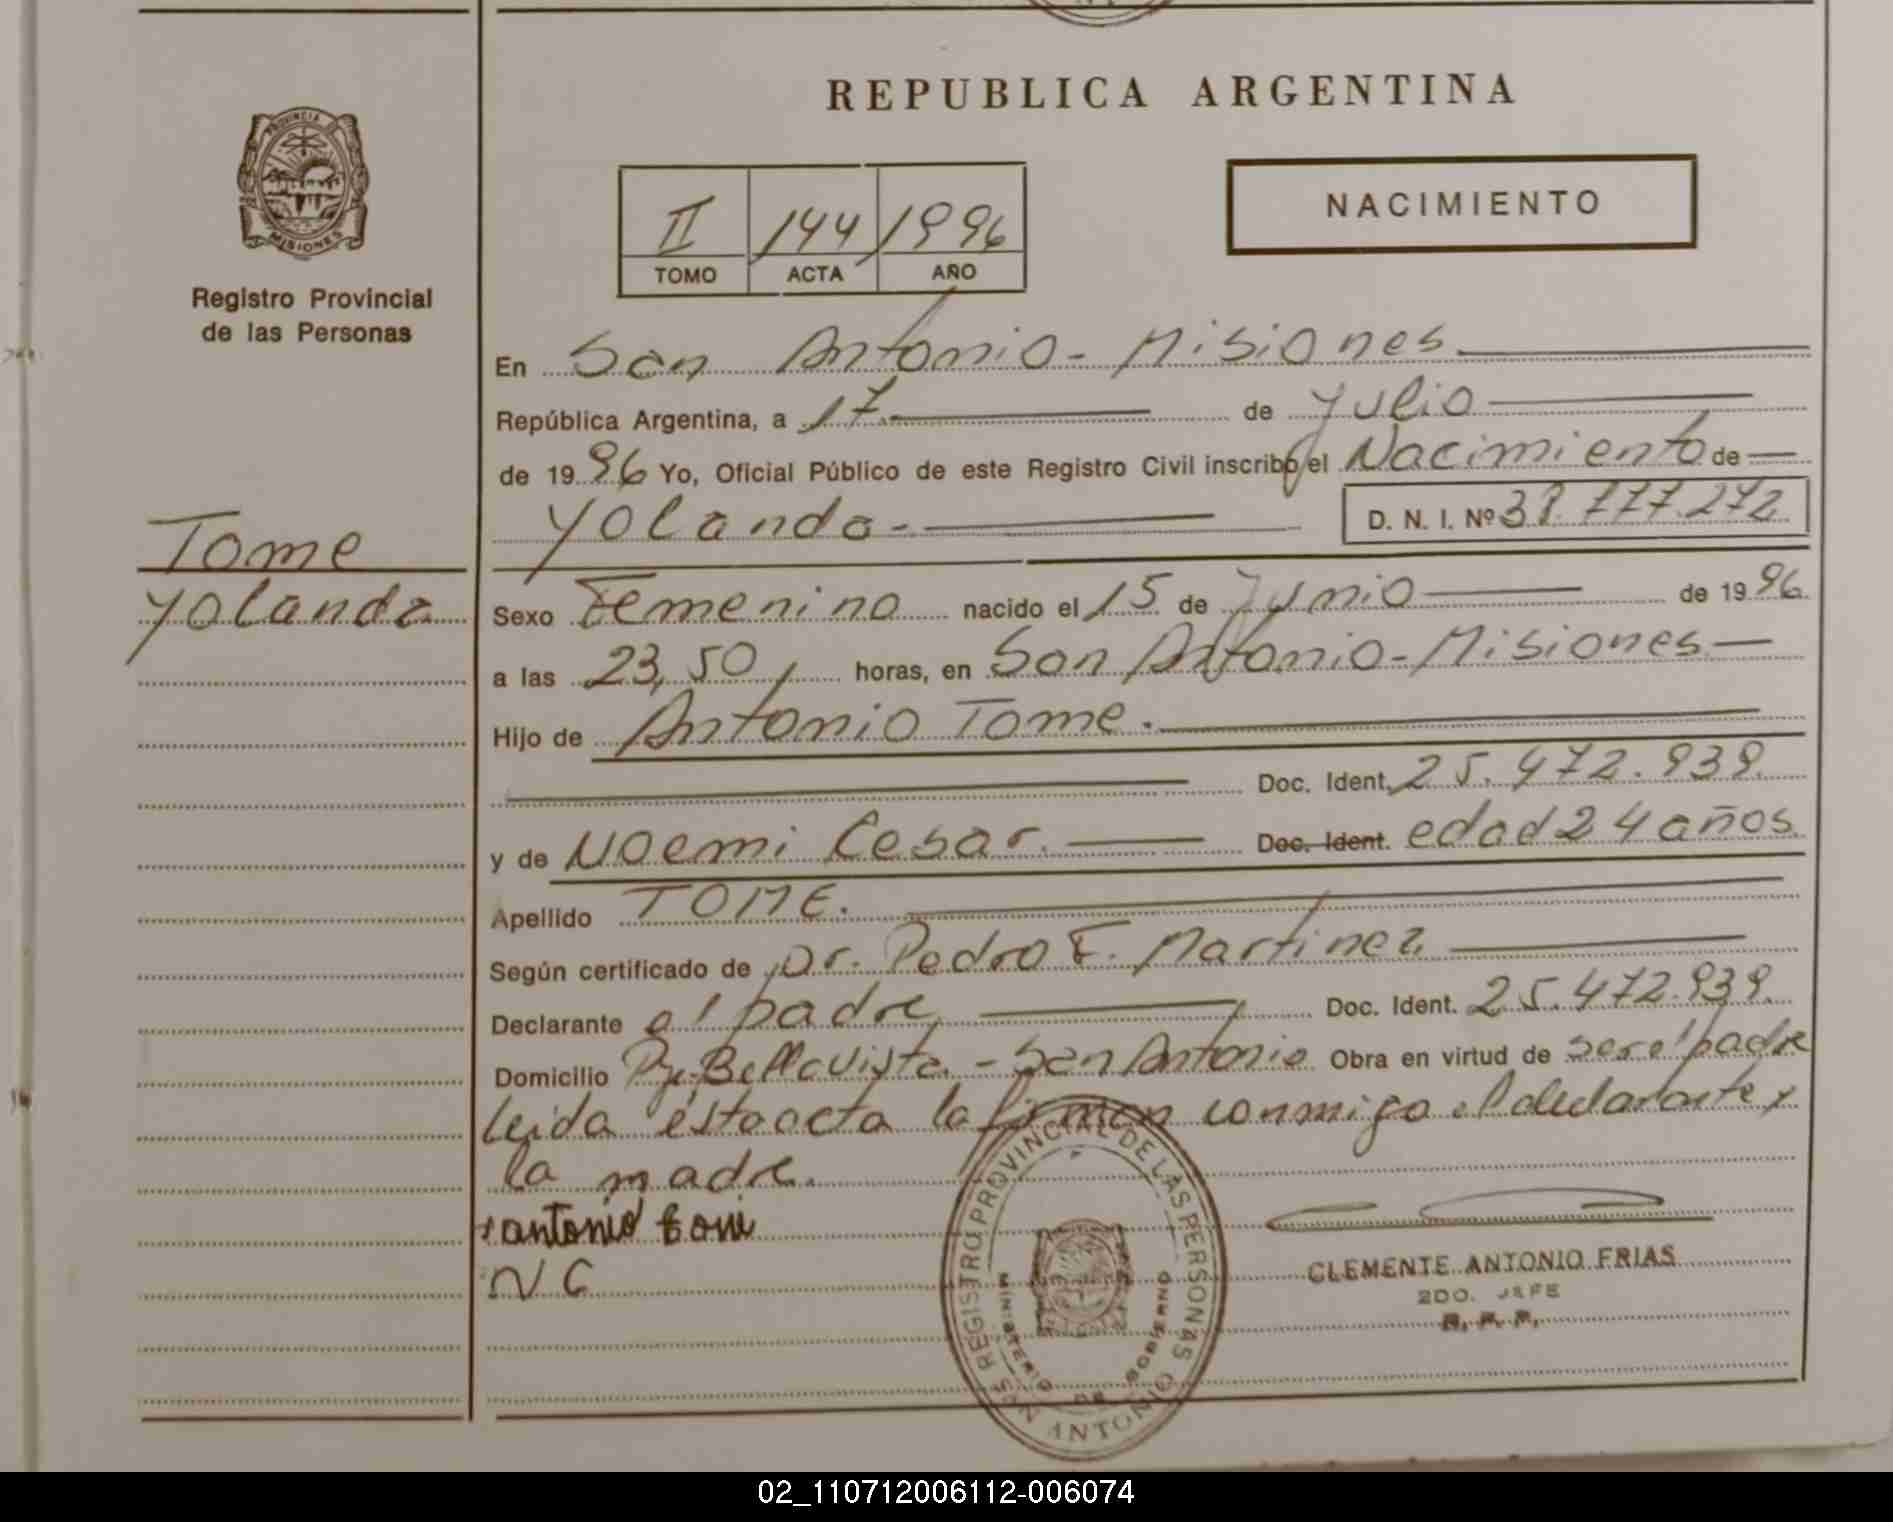 REPUBLICA ARGENTINA
PROVINCIA DE MISIONES
Registro Provincial
de las Personas
II 144 1996
TOMO ACTA AÑO
NACIMIENTO
En San Antonio - Misiones
República Argentina, a 17 de Julio
de 1996 Yo, Oficial Público de este Registro Civil inscribo el Nacimiento de
Yolanda - D. N. I. Nº 39.777.272
Tome
Yolanda
Sexo Femenino nacido el 15 de Junio de 1996
a las 23,50 horas, en San Antonio - Misiones
Hijo de Antonio Tome.
Doc. Ident. 25.472.939
y de Noemi Cesar. Doc. Ident. edad 24 años
Apellido TOME.
Según certificado de Dr. Pedro F. Martinez
Declarante el padre Doc. Ident. 25.472.939.
Domicilio Pje. Bellavista. - San Antonio Obra en virtud de ser el padre
leida ésta acta la firman conmigo el declarante y
la madre.
antonio tomi
N C
REGISTRO PROVINCIAL DE LAS PERSONAS
MINISTERIO DE GOBIERNO
SAN ANTONIO
CLEMENTE ANTONIO FRIAS
2DO. JEFE
02_110712006112-006074